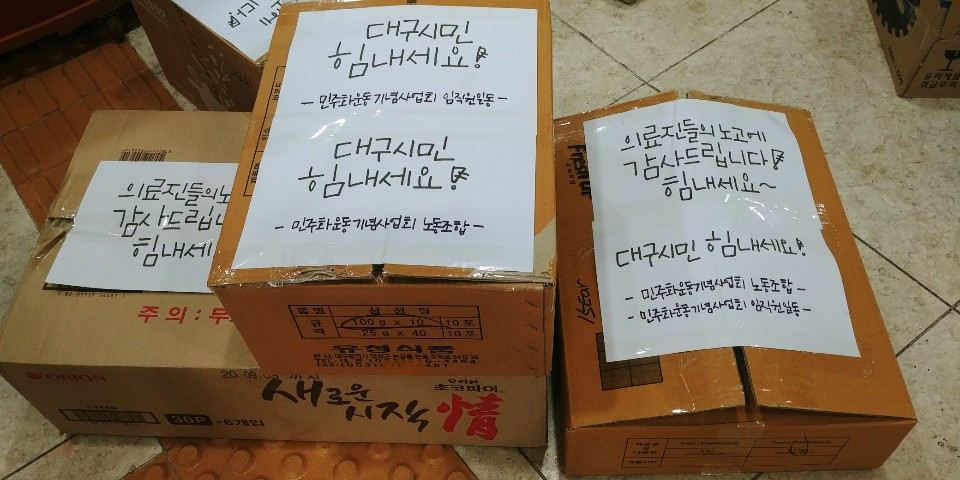 대구시민
힘내세요!
- 민주화운동기념사업회 임직원일동 -
대구시민
힘내세요!
- 민주화운동기념사업회 노동조합 -
의료진들의 노고에
감사드립니다!
힘내세요~
대구시민 힘내세요!
- 민주화운동기념사업회 노동조합 -
- 민주화운동기념사업회 임직원일동 -
의료진들의 노
감사드립니
힘내세
주의:
ORION
20.09.
까지
새로운
시작
情
오리온
초코파이
30P
-6개입
품명
규격
100g × 10
10포
25g × 40
10포
유정식품